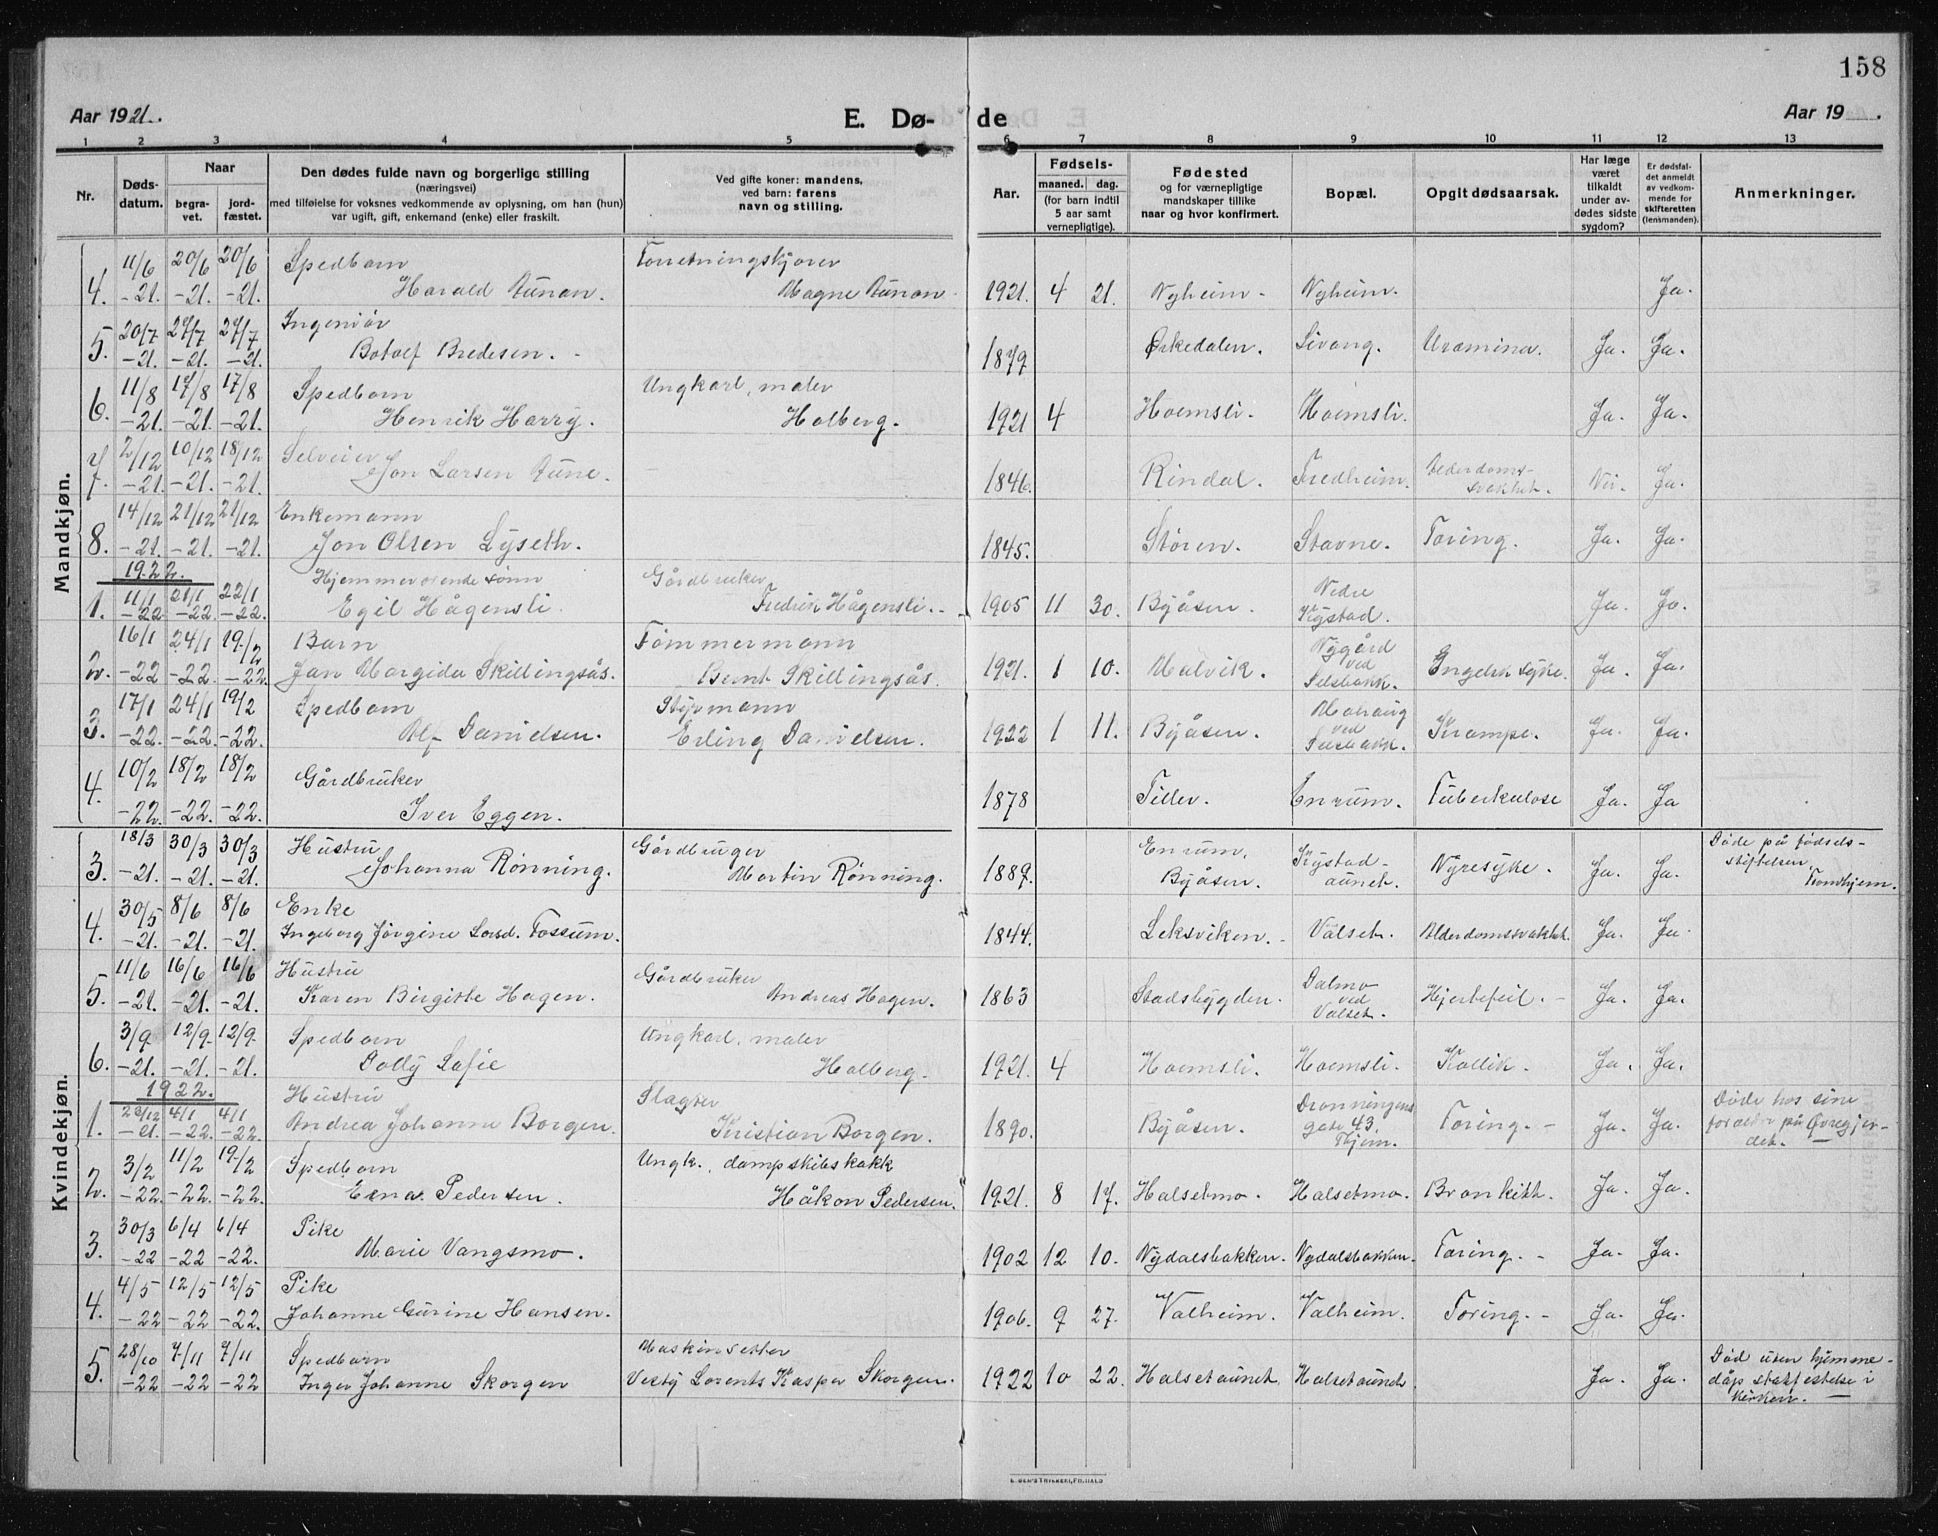 158
Aar 1921.
E. Dø- de
Aar 19 .
1 2 3 4 5 6 7 8 9 10 11 12 13
Nr.
Døds-
datum.
Naar
begra-
vet.
jord-
fæstet.
Den dødes fulde navn og borgerlige stilling
(næringsvei)
med tilføielse for voksnes vedkommende av oplysning, om han (hun)
var ugift, gift, enkemand (enke) eller fraskilt.
Ved gifte koner: mandens,
ved barn: farens
navn og stilling.
Aar.
Fødsels-
maaned. dag.
(for barn indtil
5 aar samt
vernepligtige).
Fødested
og for værnepligtige
mandskaper tillike
naar og hvor konfirmert.
Bopæl.
Opgit dødsaarsak.
Har læge
været
tilkaldt
under av-
dødes sidste
sygdom?
Er dødsfal-
det anmeldt
av vedkom-
mende for
skifteretten
(lensmanden).
Anmerkninger.
Mandkjøn.
11/6 20/6 20/6 Spedbarn Forretningskjører
4. -21. -21. -21. Harald Aunan. Magne Aunan 1921. 4 21. Nyheim. Nyheim. Ja.
20/7 27/7 27/7 Ingeniør
5. -21. -21. -21. Botolf Bredesen. 1879 Orkedalen. Sivang. Uræmina. Ja. Ja.
11/8 17/8 17/8 Spedbarn Ungkarl, maler
6. -21. -21. -21. Henrik Harry. Holberg. 1921 4 Hoemsli. Hoemsli. Ja. Ja.
2/12 10/12 18/12 Selveier
7. -21. -21. -21. Jon Larsen Aune. 1846. Rindal. Fredheim. Alderdoms-
svakhet. Nei. Ja.
14/12 21/12 21/12 Enkemann
8. -21. -21. -21. Jon Olsen Lyseth. 1845. Støren. Stavne. Tæring. Ja. Ja.
1922.
11/1 21/1 22/1 Hjemmeværende sønn Gårdbruker
1. -22 -22. -22. Egil Hågensli. Fredrik Hågensli. 1905 11 30. Byåsen. Nedre
Kystad. Ja. Ja.
16/1 24/1 19/2 Barn Tømmermann
2. -22 -22. -22. Jan Margido Skillingsås. Bernt Skillingsås. 1921. 1 10. Malvik. Nygård
ved
Selsbakk. Engelsk syke. Ja. Ja.
17/1 24/1 19/2 Spedbarn Styrmann
3. -22. -22. -22. Alf Danielsen. Erling Danielsen. 1922 1 11. Byåsen.
ved
Selsbakk. Krampe. Ja. Ja.
10/2 18/2 18/2 Gårdbruker
4. -22. -22. -22. Iver Eggen. 1878 Tiller. Enrum. Tuberkulose Ja. Ja
Kvindekjøn.
18/3 30/3 30/3 Hustru Gårdbruger
3. -21. -21. -21. Johanna Rønning. Martin Rønning. 1889. Enrum,
Byåsen. Kystad-
aunet. Nyresyke. Ja. Ja. Døde på fødsels-
stiftelsen,
Trondhjem.
30/5 8/6 8/6 Enke
4. -21. -21. -21. Ingeborg Jørgine Larsd. Fossum. 1844. Leksviken. Valset. Alderdomssvakhet. Ja. Ja.
11/6 16/6 16/6 Hustru Gårdbruker
5. -21. -21. -21. Karen Birgitte Hagen. Andreas Hagen. 1863 Stadsbygden. Dalmo
ved
Valset. Hjertefeil. Ja. Ja.
3/9 12/9 12/9 Spedbarn Ungkarl, maler
6. -21. -21. -21. Dolly Sofie Holberg. 1921. 4 Hoemsli. Hoemsli. Kollik. Ja. Ja.
1922.
23/12 4/1 4/1 Hustru Slagter
1. -21. -22. -22. Andrea Johanne Borgen. Kristian Borgen. 1890. Byåsen. Dronningens
gate 43.
Thjem. Tæring. Ja. Ja. Døde hos sine
foreldre på Øvregjer-
det.
3/2 11/2 19/2 Spedbarn Ungk., dampskibskokk
2. -22. -22. -22. Erna Pedersen. Håkon Pedersen. 1921. 8 17. Halsetmo. Halsetmo. Bronkitt. Ja. Ja.
30/3 6/4 6/4 Pike
3. -22 -22 -22. Marie Vangsmo. 1902 12 10. Nydalsbakken. Nydalsbakken. Tæring. Ja. Ja.
4/5 12/5 12/5 Pike
4. -22 -22 -22. Johanne Gurine Hansen. 1906. 9 27. Valheim. Valheim. Tæring. Ja. Ja.
28/10 7/11 7/11 Spedbarn Maskinsetter
5. -22 -22 -22 Inger Johanne Skorgen Lorents Kasper Skorgen. 1922 10 22. Halsetaunet. Halsetaunet Ja. Ja. Død uten hjemme-
dåp stadfestelse i
kirken.